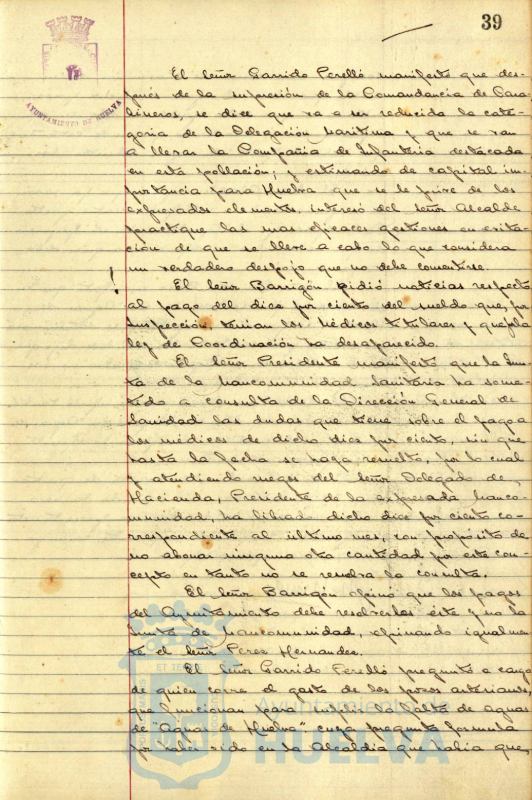 39
AYUNTAMIENTO DE HUELVA
El Señor Garrido Perelló manifestó que des-
pués de la supresión de la Comandancia de Cara-
bineros, se dice que va a ser reducida la cate-
goria de la Delegación Marítima y que se van
a llevar la Compañia de Infanteria destacada
en esta población; y estimando de capital im-
portancia para Huelva que se le prive de los
expresados elementos, interesó del señor Alcalde
practique las mas eficaces gestiones en evita-
ción de que se lleve a cabo lo que considera
un verdadero despojo que no debe consentirse.
El Señor Barrigón pidió noticias respecto
al pago del diez por ciento del sueldo que, por
Inspección, tenian los Médicos titulares y que la
ley de Coordinación ha desaparecido.
El Señor Presidente manifestó que la Jun-
ta de la Mancomunidad Sanitaria ha some-
tido a consulta de la Dirección General de
Sanidad las dudas que tiene sobre el pago a
los médicos de dicho diez por ciento, sin que
hasta la fecha se haya resuelto, por lo cual
y atendiendo ruegos del señor Delegado de
Hacienda, Presidente de la expresada Manco-
munidad, ha librado dicho diez por ciento co-
rrespondiente al último mes, con propósito de
no abonar ninguna otra cantidad por este con-
cepto en tanto no se resuelva la consulta.
El Señor Barrigón opinó que los pagos
del Ayuntamiento debe resolverlos éste y no la
Junta de Mancomunidad, opinando igualmen-
te el señor Perez Hernandez.
El Señor Garrido Perelló preguntó a cargo
de quien corre el gasto de los pozos artesianos
que funcionan para suplir la falta de aguas
de "Aguas de Huelva" cuya pregunta formula
por haber oido en la Alcaldia que habia que,
Ayuntamiento de
HUELVA